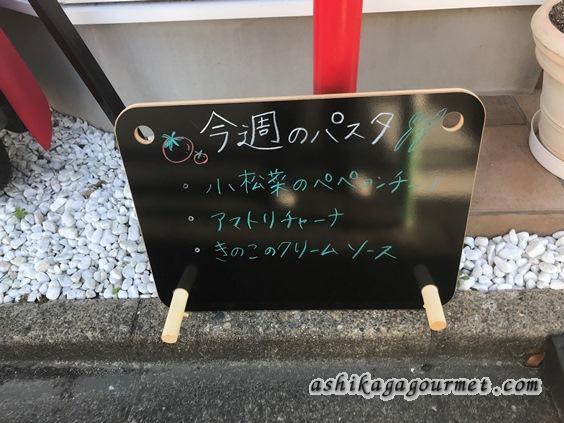 今週のパスタ
・小松菜のペペロンチーノ
・アマトリチャーナ
・きのこのクリームソース
ashikagagourmet.com